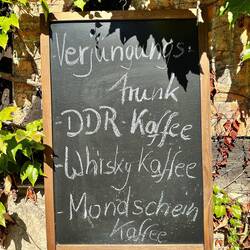 Verjüngungs-
trunk
- DDR-Kaffee
- Whisky Kaffee
- Mondschein
Kaffee